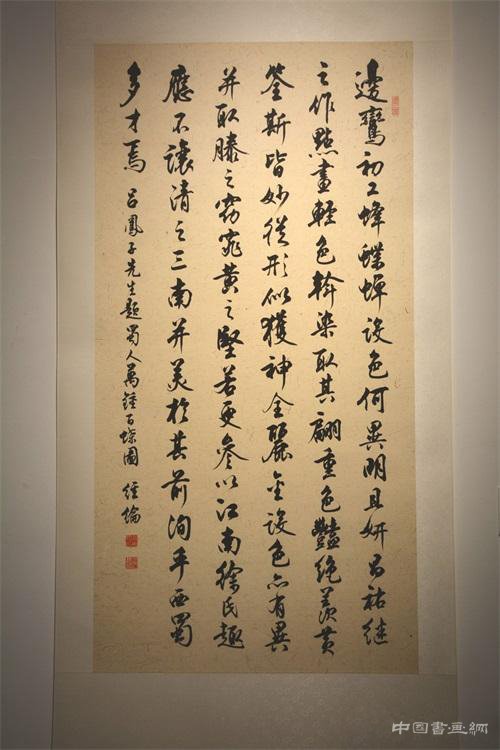 邊鸞初工蜂蝶蟬設色何異明且妍昌祐繼
之作點畫輕色斡染取其翩重色豔絶羨黄
筌斯皆妙從形似獲神全麗金設色亦有異
并取滕之窈窕黄之堅若更参以江南徐氏趣
應不讓清之三南并美於其前洵乎西蜀
多才焉 吕鳳子先生題蜀人萬鍾百蝶圖 經綸
中国書画網